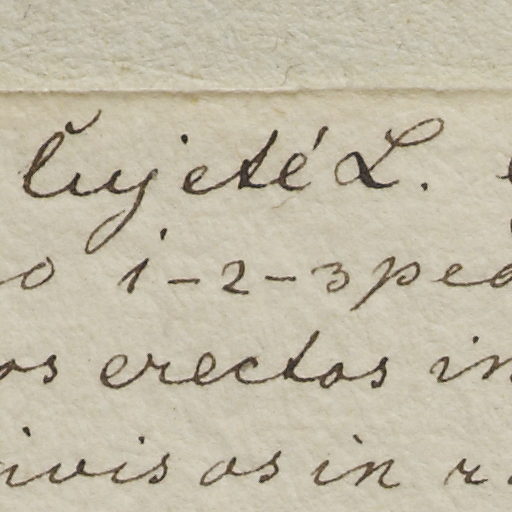 Cujeté L.
o 1-2-3 ped
os erectos in
ivisos in r